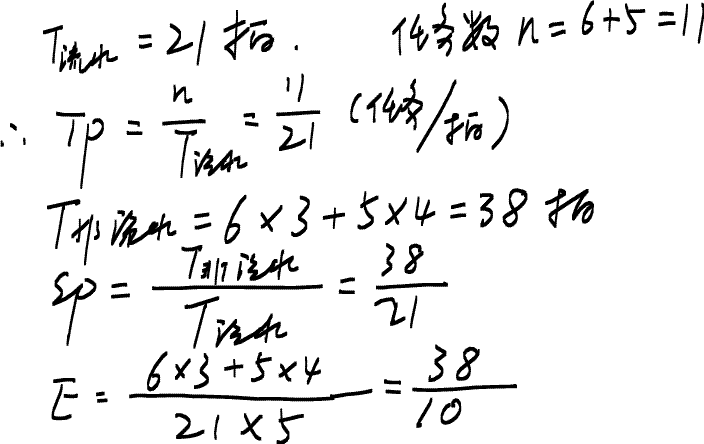 T流水 = 21 拍. 任务数 n = 6+5 = 11
∴ Tp = n/T流水 = 11/21 (任务/拍)
T非流水 = 6×3+5×4 = 38 拍
Sp = T非流水/T流水 = 38/21
E = (6×3+5×4)/(21×5) = 38/10